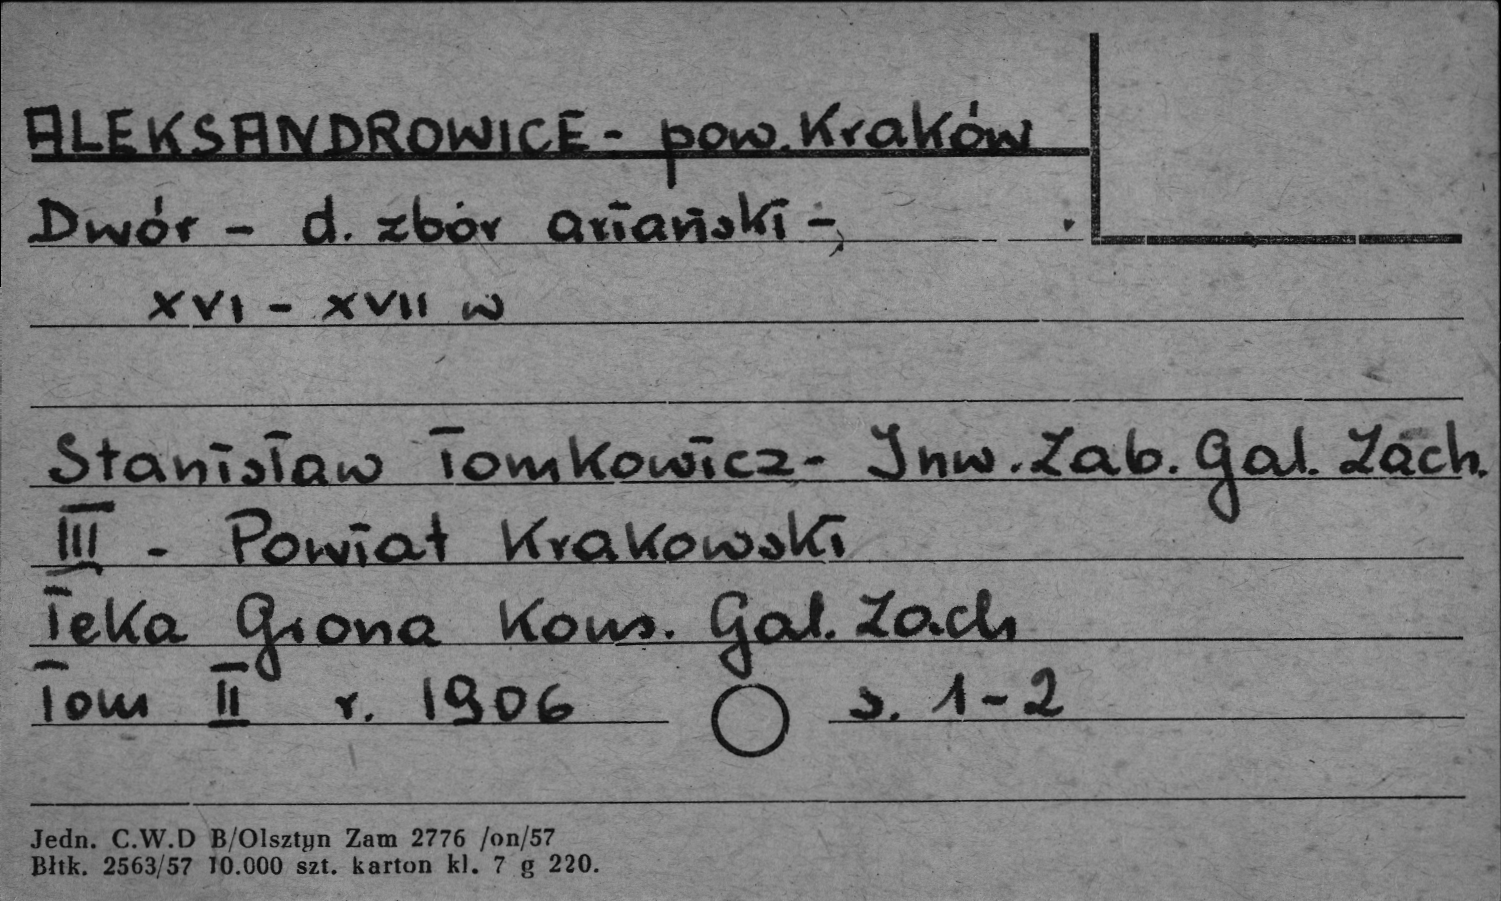 ALEKSANDROWICE - pow. Kraków
Dwór - d. zbór ariański -,
XVI - XVII w
Stanisław Tomkowicz - Inw. Zab. Gal. Zach.
III - Powiat Krakowski
Teka Grona Kons. Gal. Zach
Tom II r. 1906 s. 1-2
Jedn. C.W.D B/Olsztyn Zam 2776 /on/57
Błtk. 2563/57 10.000 szt. karton kl. 7 g 220.